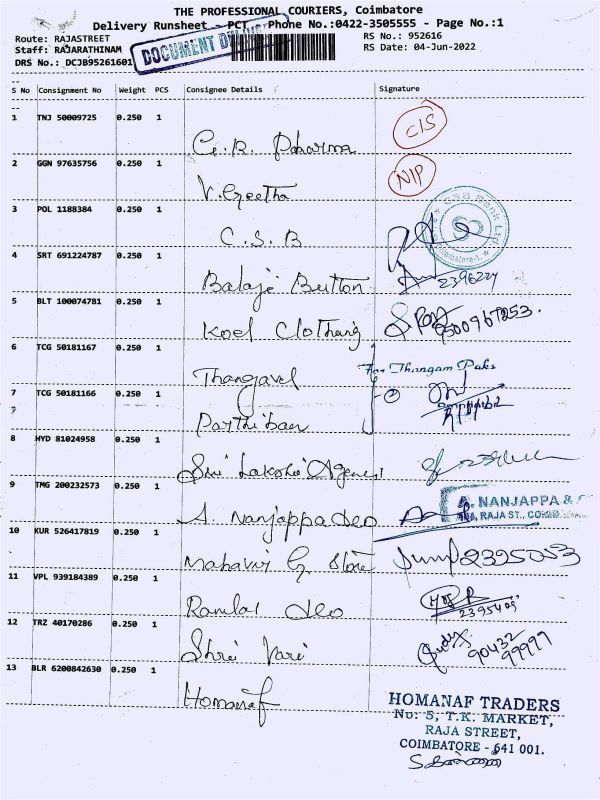 THE PROFESSIONAL COURIERS, Coimbatore
Delivery Runsheet - PCT, Phone No.:0422-3505555 - Page No.:1
Route: RAJASTREET
RS No.: 952616
Staff: RAJARATHINAM
RS Date: 04-Jun-2022
DRS No.: DCJB95261601
DOCUMENT
S No Consignment No Weight PCS Consignee Details Signature
1 TNJ 50009725 0.250 1
G.R. Pharma CIS
2 GGN 97635756 0.250 1
V. Geetha NIP
3 POL 1188384 0.250 1
C.S.B
CSB Bank Ltd. Coimbatore-1.
4 SRT 691224787 0.250 1
Balaji Button 2396224
5 BLT 100074781 0.250 1
Koel Clothing
6 TCG 50181167 0.250 1
Thangavel For Thangam Paks
7 TCG 50181166 0.250 1
7
Parthiban
8 HYD 81024958 0.250 1
Sri Lakshi
9 TMG 200232573 0.250 1
A. Nanjappa A. NANJAPPA &
RAJA ST.,
10 KUR 526417819 0.250 1
G Store 2395053
11 VPL 939184389 0.250 1
Ramlal
12 TRZ 40170286 0.250 1
Shri Vari 90432
99999
13 BLR 6200842630 0.250 1
Homanaf
HOMANAF TRADERS
No: 5, T.K. MARKET,
RAJA STREET,
COIMBATORE - 641 001.